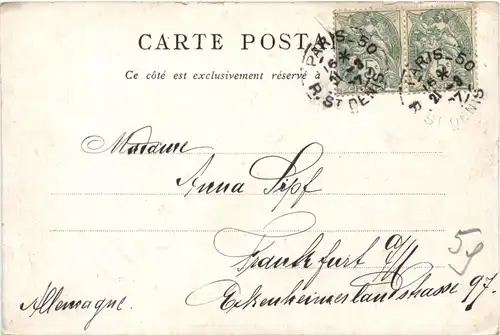 CARTE POSTA
Ce côté est exclusivement réservé à
PARIS-50
R. ST DENIS
PARIS-50
ST DENIS
Madame
Anna Sipf
Frankfurt a/M
Allemagne. Eckenheimerlandstrasse 97.